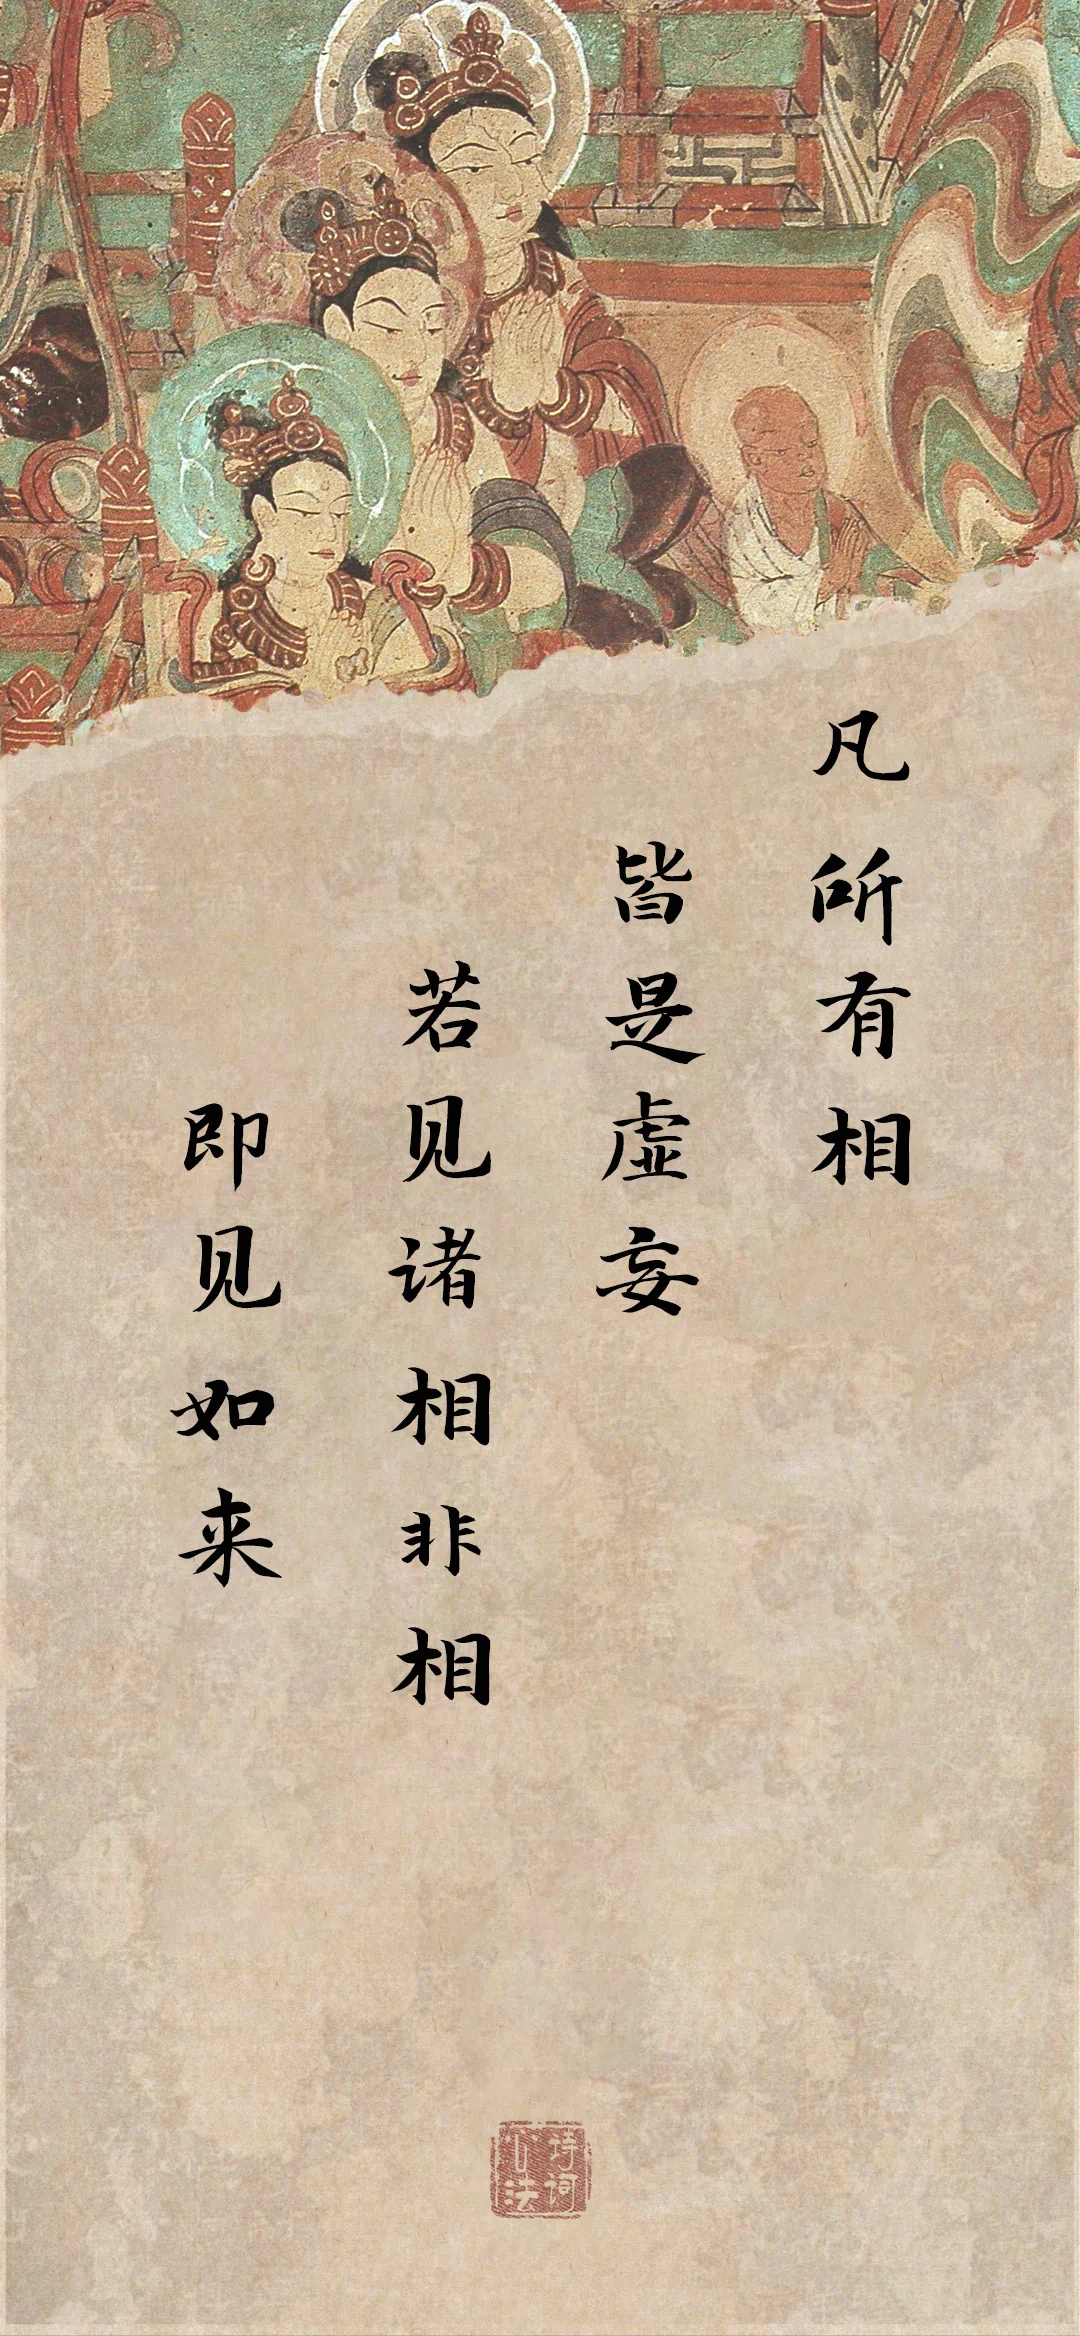 凡所有相
皆是虚妄
若见诸相非相
即见如来
诗词
心法